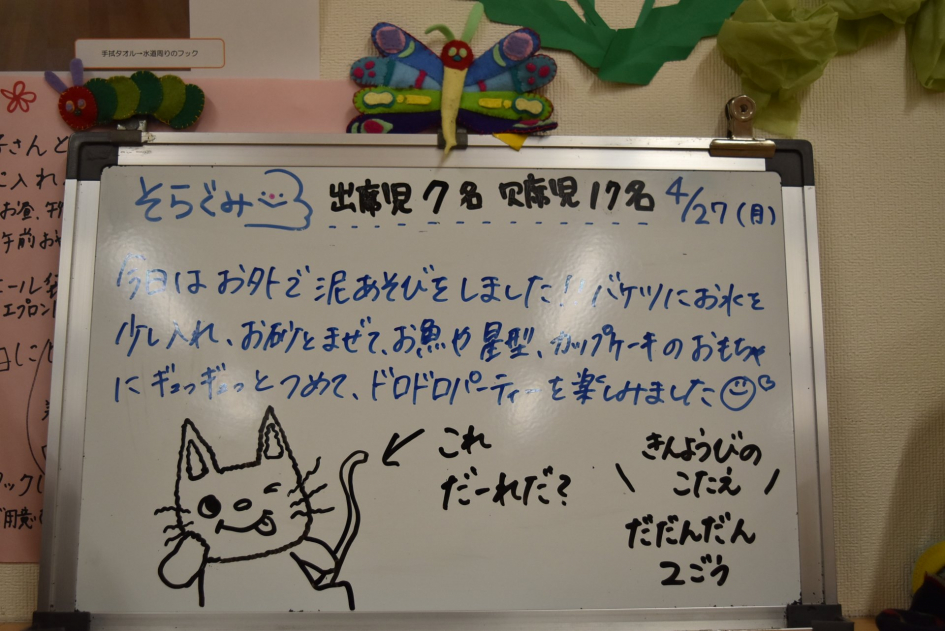 手拭タオル→水道周りのフック
そらぐみ 出席児7名 欠席児17名 4/27(月)
今日はお外で泥あそびをしました!バケツにお水を
少し入れ、お砂とまぜて、お魚や星型、カップケーキのおもちゃ
にギュッギュッとつめて、ドロドロパーティーを楽しみました
これ
だーれだ?
きんようびの
こたえ
だだんだん
2ごう